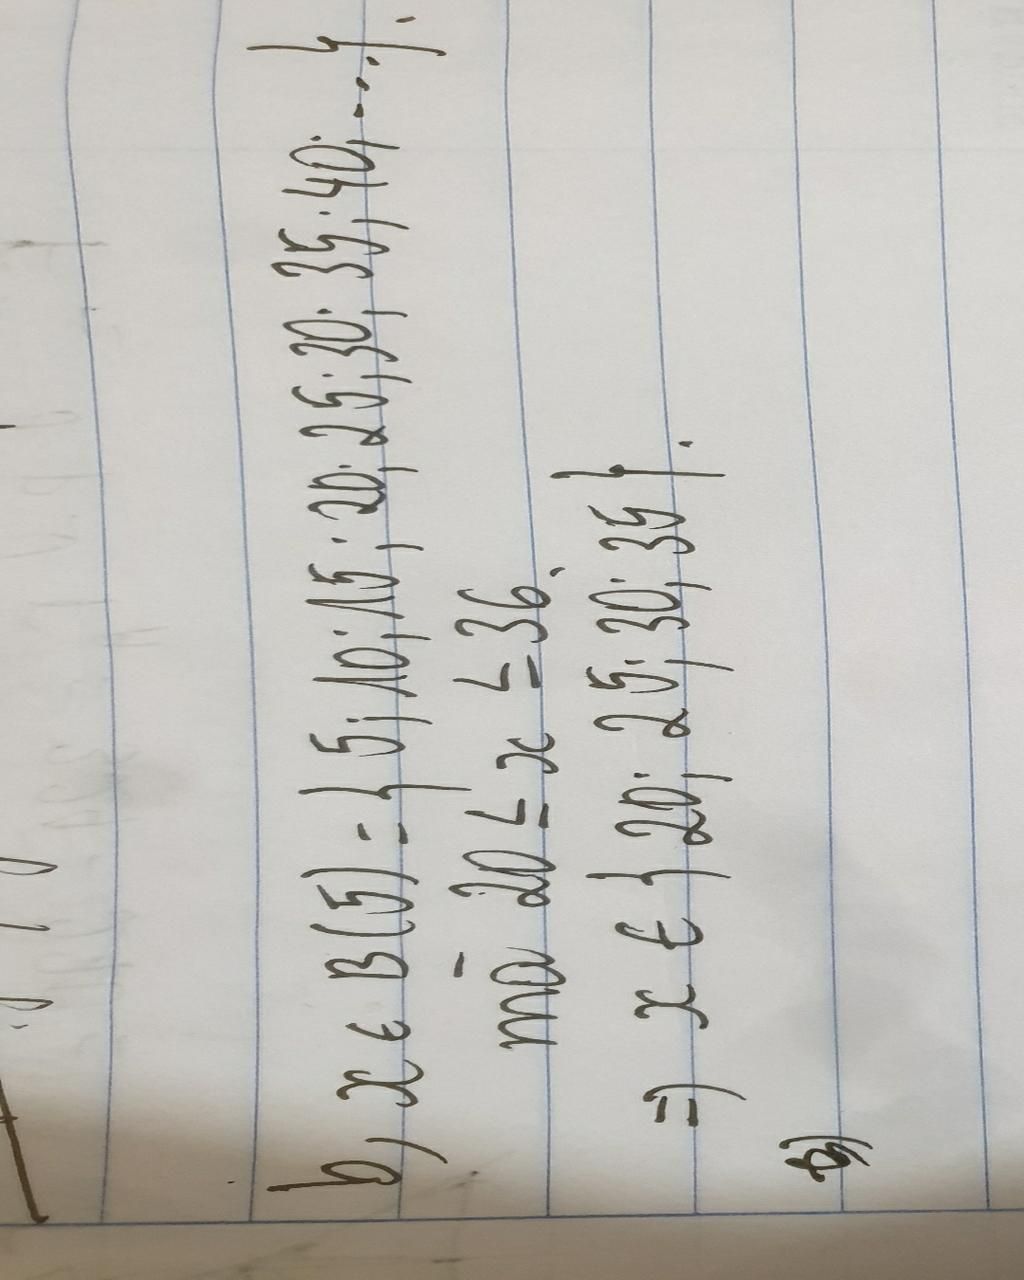 b, x ∈ B(5) = { 5; 10; 15; 20; 25; 30; 35; 40; ...}.
mà 20 ≤ x ≤ 36.
=) x ∈ { 20; 25; 30; 35 }.